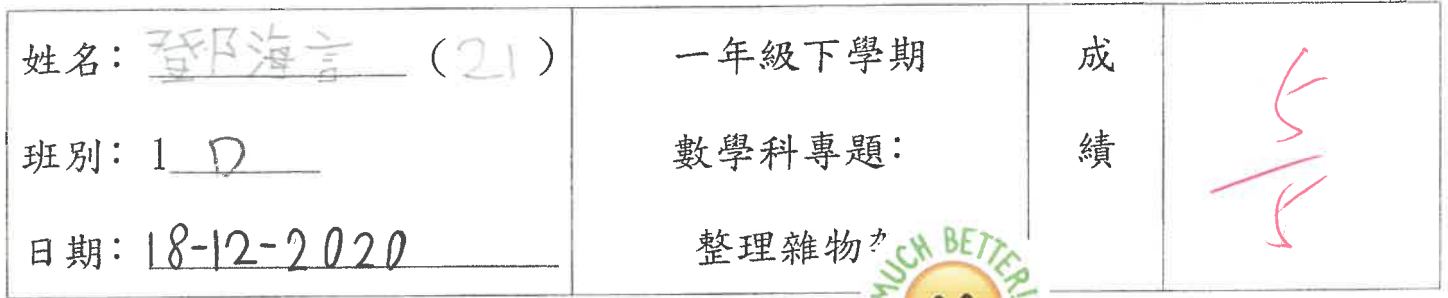 姓名：鄧海言（21）
班別：1 D
日期：18-12-2020
一年級下學期
數學科專題：
整理雜物
成
績
5
5
MUCH BETTER!